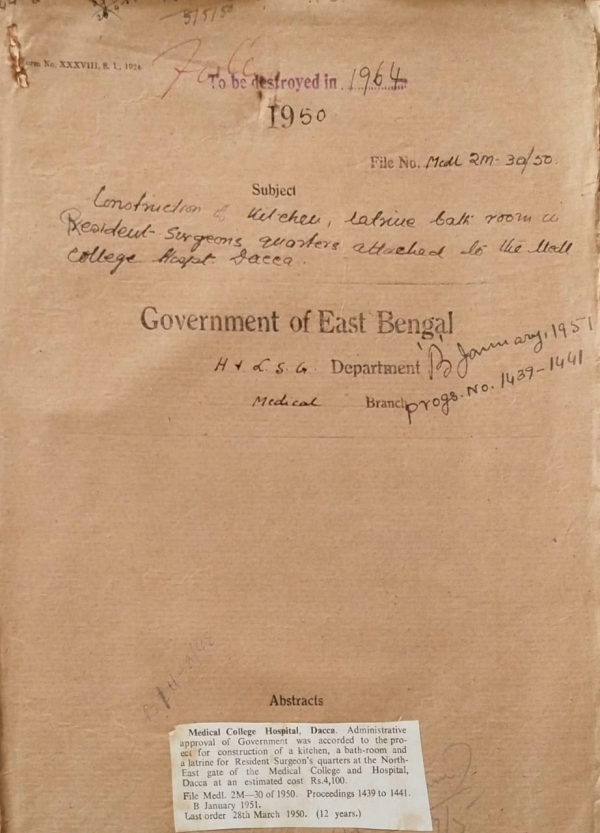 3/5/50
Form No. XXXVIII, S. I., 1924
To be destroyed in 1964
1950
File No. Medl 2M-30/50.
Subject
Construction of Kitchen, latrine bath room in
Resident Surgeons quarters attached to the Medl
College Hospt. Dacca.
Government of East Bengal
H & L. S. G. Department 'B' January, 1951
Medical Branch progs. No. 1439-1441
Abstracts
Medical College Hospital, Dacca. Administrative
approval of Government was accorded to the pro-
ect for construction of a kitchen, a bath-room and
a latrine for Resident Surgeon's quarters at the North-
East gate of the Medical College and Hospital,
Dacca at an estimated cost Rs.4,100.
File Medl. 2M—30 of 1950. Proceedings 1439 to 1441.
B January 1951.
Last order 28th March 1950. (12 years.)